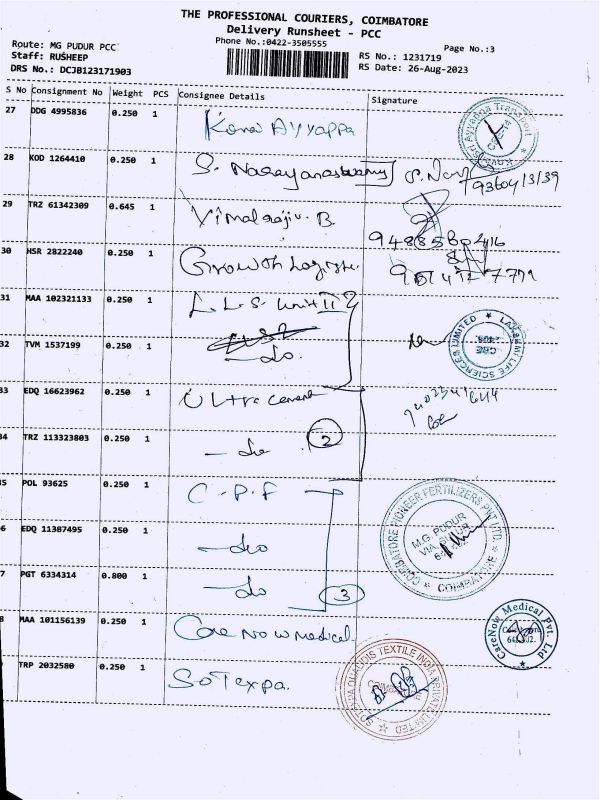 THE PROFESSIONAL COURIERS, COIMBATORE
Delivery Runsheet - PCC
Phone No.:0422-3505555
Page No.:3
Route: MG PUDUR PCC
Staff: RUSHEEP
DRS No.: DCJB123171903
RS No.: 1231719
RS Date: 26-Aug-2023
S No Consignment No Weight PCS Consignee Details Signature
27 DDG 4995836 0.250 1 Konai Ayyappa
28 KOD 1264410 0.250 1 S. Narayanaswamy
29 TRZ 61342309 0.645 1 Vimalrajiv. B.
30 HSR 2822240 0.250 1 Growth Logistic
31 MAA 102321133 0.250 1 L.L.S. Unit II
32 TVM 1537199 0.250 1 -do.
33 EDQ 16623962 0.250 1 Ultra cement
34 TRZ 113323803 0.250 1 -do 2
35 POL 93625 0.250 1 C.P.F
6 EDQ 11387495 0.250 1 -do
7 PGT 6334314 0.800 1 -do 3
8 MAA 101156139 0.250 1 Care Now Medical.
TRP 2032580 0.250 1 SoTexpa.
COIMBATORE PIONEER FERTILIZERS PVT LTD.
M.G. PUDUR
VIA SULUR
COIMBATORE
CareNow Medical Pvt. Ltd